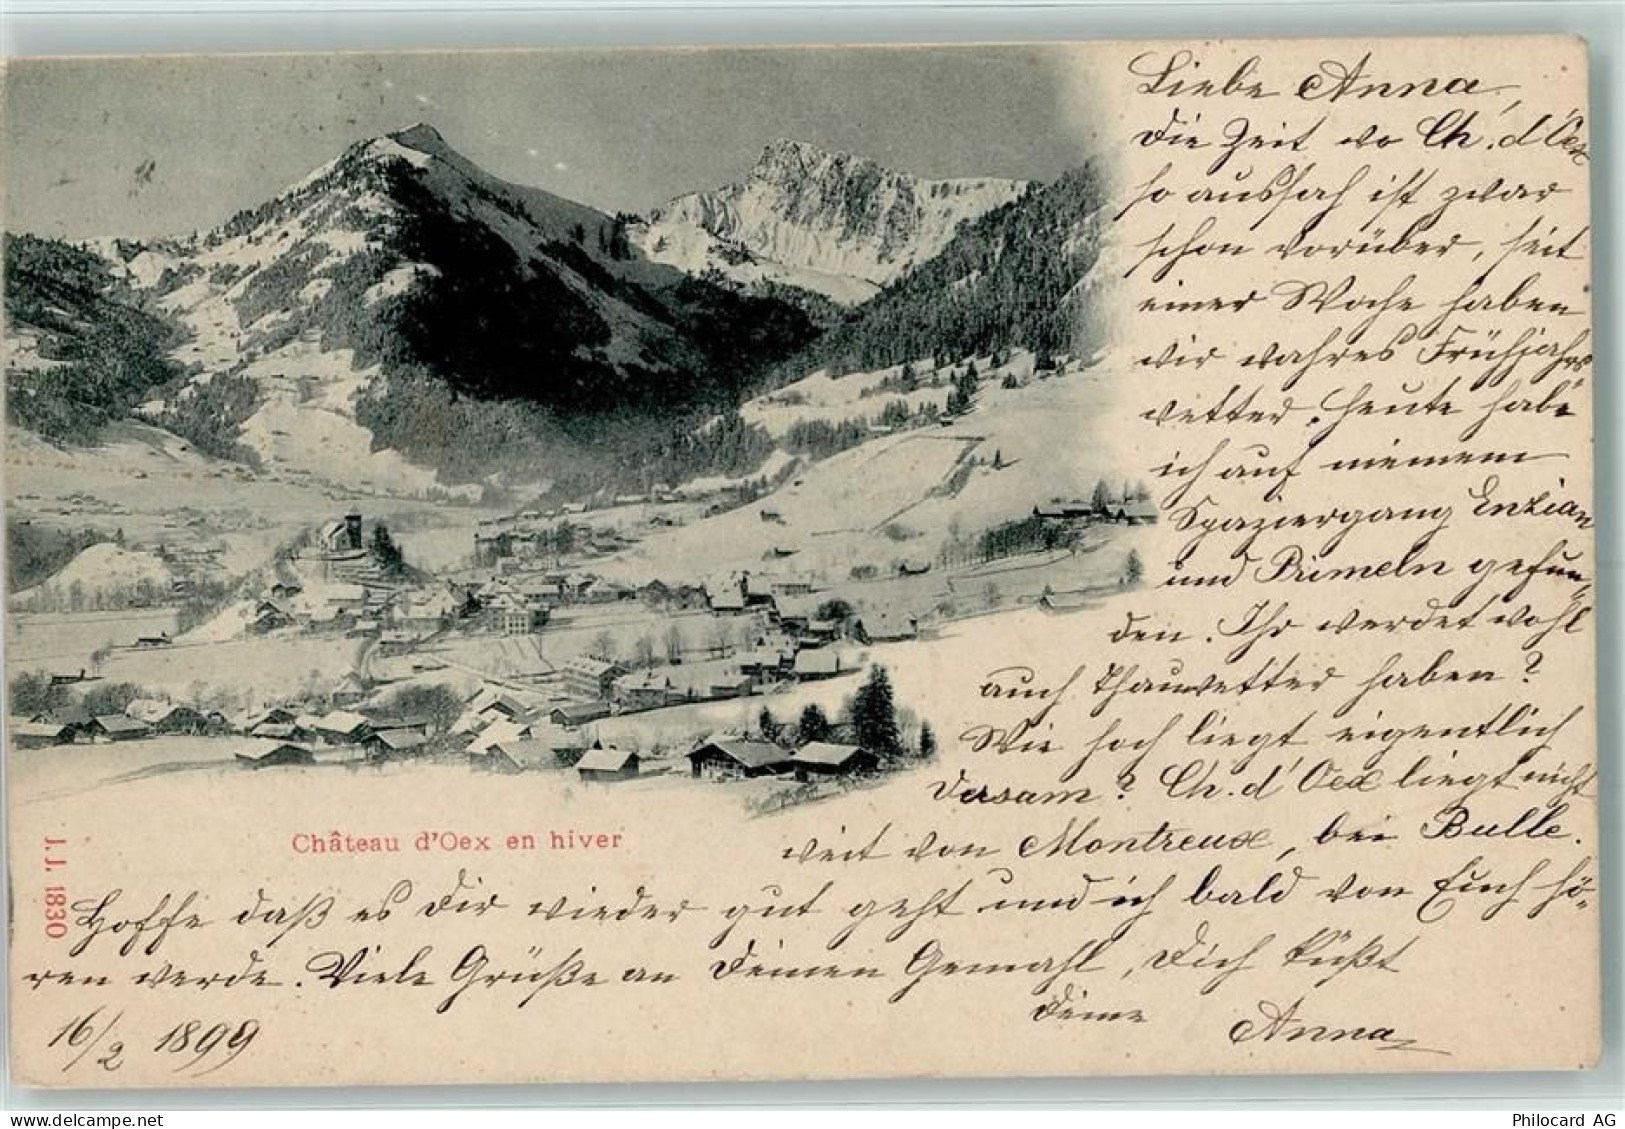 Liebe Anna,
die Zeit wo Ch. d'Oex
so aussah ist zwar
schon vorüber, seit
einer Woche haben
wir wahres Frühjahrs
wetter. Heute habe
ich auf meinem
Spaziergang Enzian
und Primeln gefun-
den. Ihr werdet wohl
auch Thauwetter haben?
Wie hoch liegt eigentlich
Dersam? Ch. d'Oex liegt nicht
weit von Montreux, bei Bulle.
Château d'Oex en hiver
J. J. 1830
Hoffe daß es Dir wieder gut geht und ich bald von Euch hö-
ren werde. Viele Grüße an Deinen Gemahl, Dich küßt
Deine Anna
16/2 1899
Philocard AG